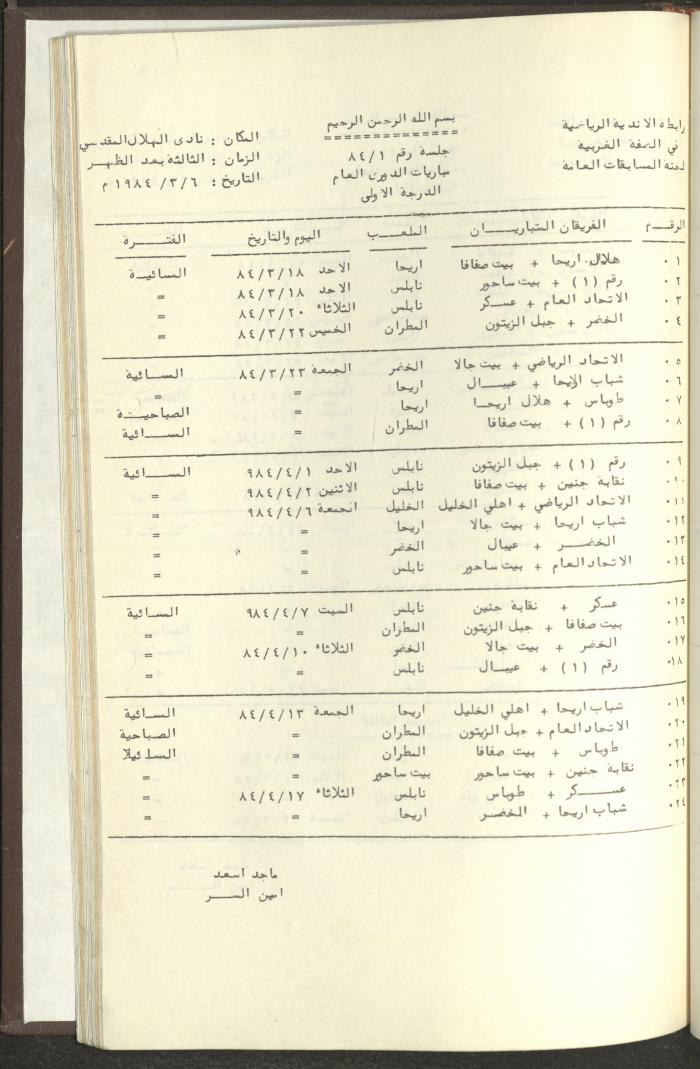 بسم الله الرحمن الرحيم
رابطة الاندية الرياضية
في الضفة الغربية
لجنة المسابقات العامة
جلسة رقم ٨٤/١
مباريات الدورى العام
الدرجة الاولى
المكان : نادى الهلال المقدسي
الزمان : الثالثة بعد الظهر
التاريخ : ١٩٨٤/٣/٦ م
الرقم الفريقان المتباريان الملعب اليوم والتاريخ الفترة
٠١ هلال اريحا + بيت صفافا اريحا الاحد ٨٤/٣/١٨ المسائية
٠٢ رقم (١) + بيت ساحور نابلس الاحد ٨٤/٣/١٨ =
٠٣ الاتحاد العام + عسكر نابلس الثلاثاء ٨٤/٣/٢٠ =
٠٤ الخضر + جبل الزيتون المطران الخميس ٨٤/٣/٢٢ =
٠٥ الاتحاد الرياضي + بيت جالا الخضر الجمعة ٨٤/٣/٢٣ المسائية
٠٦ شباب اريحا + عيبال اريحا = =
٠٧ طوباس + هلال اريحا اريحا = الصباحية
٠٨ رقم (١) + بيت صفافا المطران = المسائية
٠٩ رقم (١) + جبل الزيتون نابلس الاحد ٩٨٤/٤/١ المسائية
٠١٠ نقابة جنين + بيت صفافا نابلس الاثنين ٩٨٤/٤/٢ =
٠١١ الاتحاد الرياضي + اهلي الخليل الخليل الجمعة ٩٨٤/٤/٦ =
٠١٢ شباب اريحا + بيت جالا اريحا = =
٠١٣ الخضر + عيبال الخضر = =
٠١٤ الاتحاد العام + بيت ساحور نابلس = =
٠١٥ عسكر + نقابة جنين نابلس السبت ٩٨٤/٤/٧ المسائية
٠١٦ بيت صفافا + جبل الزيتون المطران = =
٠١٧ الخضر + بيت جالا الخضر الثلاثاء ٨٤/٤/١٠ =
٠١٨ رقم (١) + عيبال نابلس = =
٠١٩ شباب اريحا + اهلي الخليل اريحا الجمعة ٨٤/٤/١٣ المسائية
٠٢٠ الاتحاد العام + جبل الزيتون المطران = الصباحية
٠٢١ طوباس + بيت صفافا المطران =
٠٢٢ نقابة جنين + بيت ساحور بيت ساحور = =
٠٢٣ عسكر + طوباس نابلس الثلاثاء ٨٤/٤/١٧ =
٠٢٤ شباب اريحا + الخضر اريحا = =
ماجد اسعد
امين السر